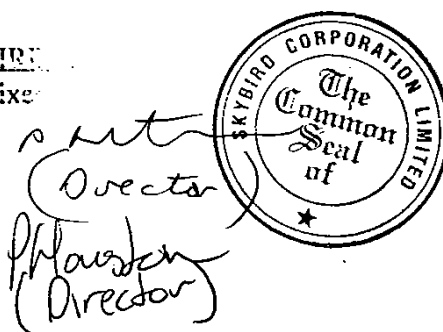 SKYBIRD CORPORATION LIMITED
The
Common
Seal
of
(Director)
P Houston
(Director)